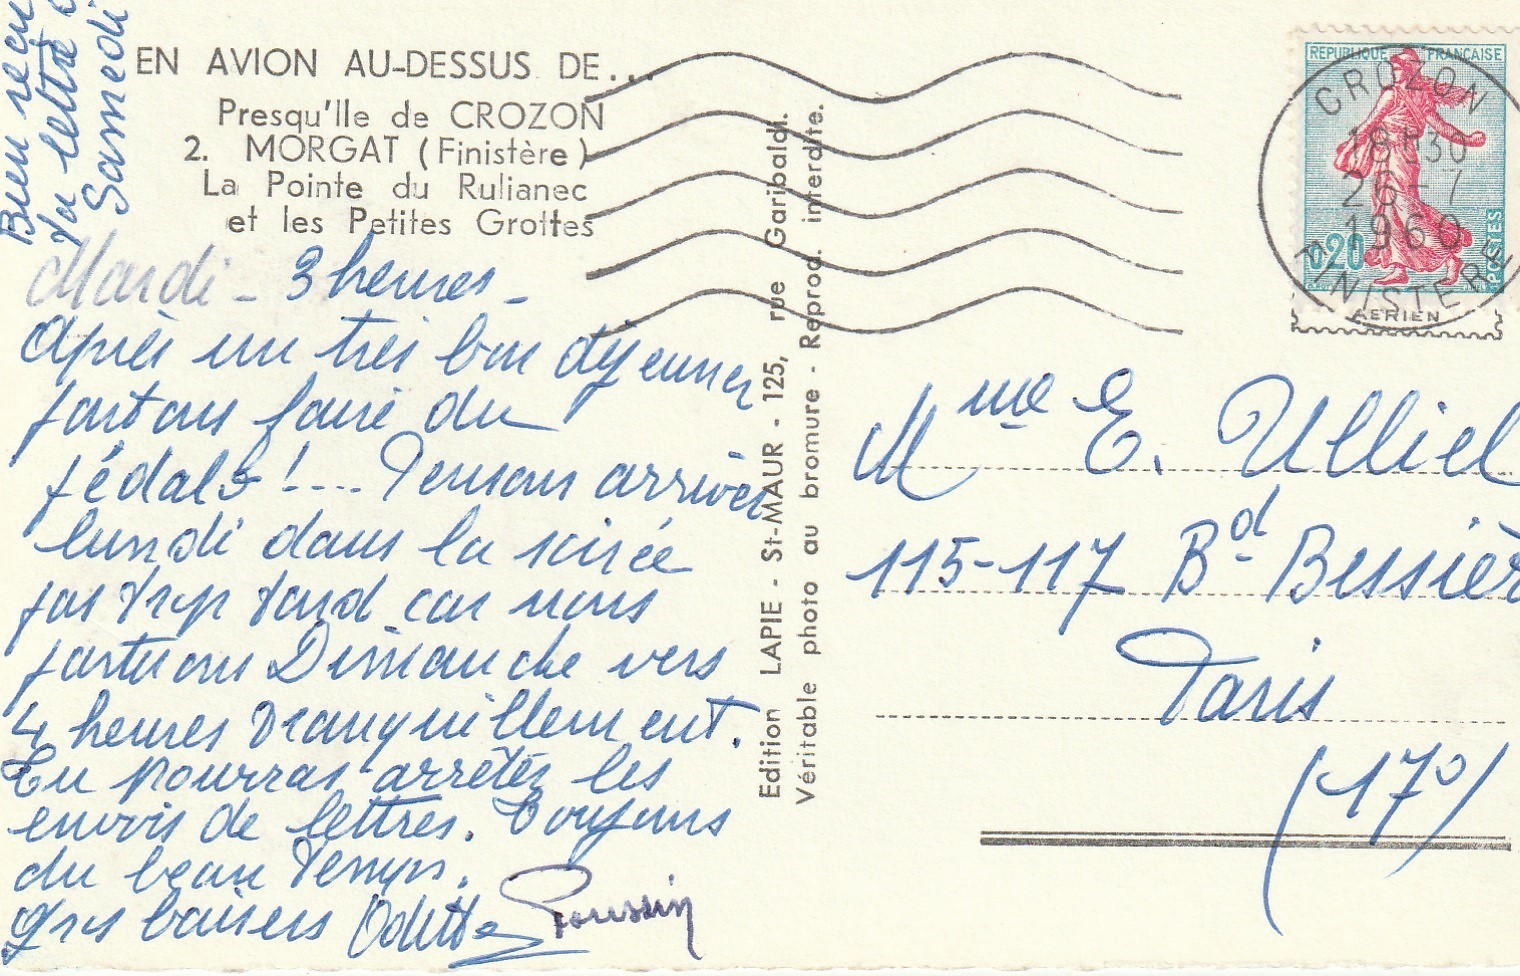 EN AVION AU-DESSUS DE...
Presqu'Ile de CROZON
2. MORGAT (Finistère)
La Pointe du Rulianec
et les Petites Grottes
Bien reçu
ta lettre
Samedi
Mardi - 3 heures -
après un très bon déjeuner
partons faire du
pédalo !.... Pensons arriver
lundi dans la soirée
pas trop tard car nous
partirons Dimanche vers
4 heures tranquillement.
Tu pourras arrêter les
envois de lettres. Toujours
du beau temps.
gros baisers Odette Poussin
Edition LAPIE - St-MAUR - 125, rue Garibaldi.
Véritable photo au bromure - Reprod. interdite.
REPUBLIQUE FRANÇAISE
0,20
POSTES
CROZON
18H30
26-7
1960
FINISTERE
AERIEN
Mme E. Ulliel
115-117 Bd Bessièr
Paris
(17°)